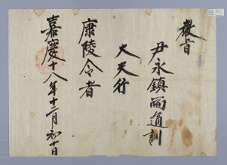 敎旨
尹永鎭爲通訓
大夫行
康陵令者
嘉慶十八年十二月初十日